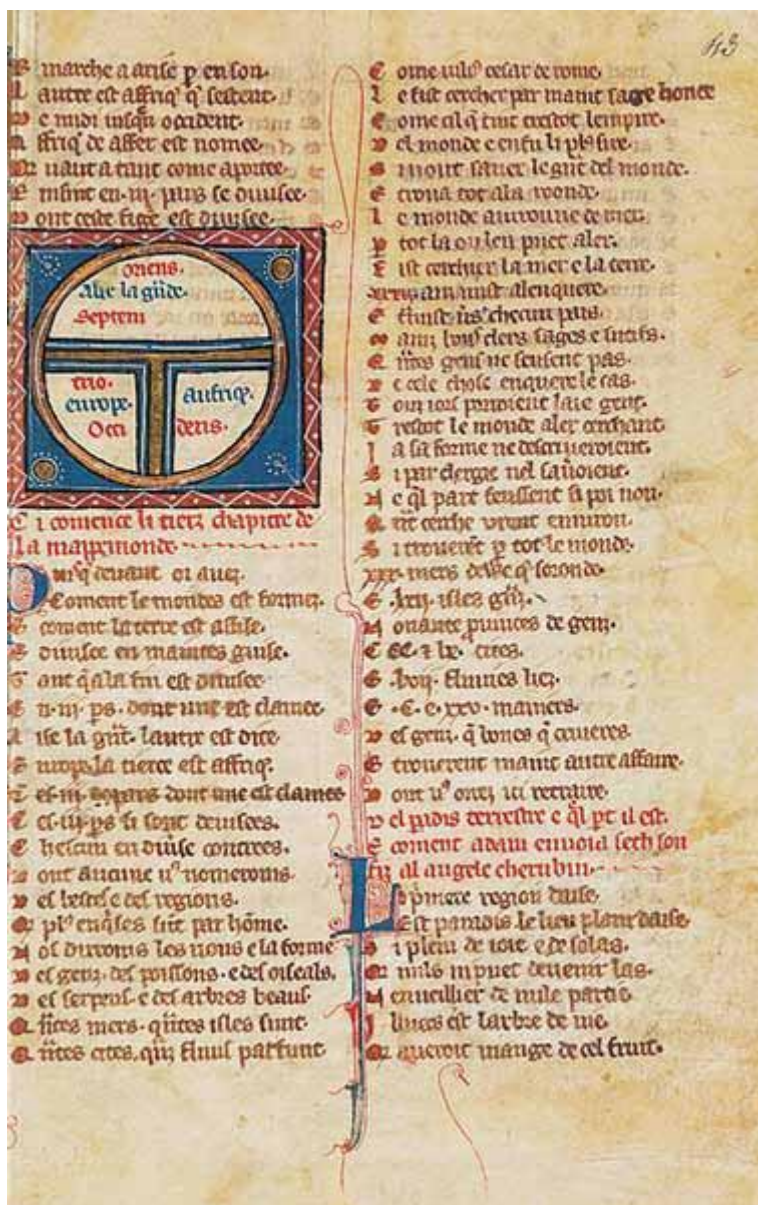 marche a arise p en son.
L autre est affriq' q' sestent
D e midi iusq'n occident.
A ffriq' de affer est nomee.
Q' uaut a tant come aportee.
E nsint en .iii. pars se diuisee.
D ont ceste figre est diuisee.
oriens.
Asie la g'de.
Septem
trio.
europe.
Occi
aufriq'.
dens.
C i comence li tierz chapitre de
la mapemonde.
deuant oi auez.
Coment le mondes est formez.
E coment la terre est assise.
E diuisee en maintes guise.
T ant q' a la fin est diuisee
E n .iii. ps. dont une est clamee.
A ise la g'nt. lautre est dite
E urope la tierce est affriq'.
dont une est clamee
C es .iii. ps si sont deuisees.
C hescun en diuise contrees.
D ont aucune u' nomerons.
D es bestes e des regions.
par home.
N os dirrons les nons e la forme
D es genz. des poissons. e des oiseals.
D es serpens. e des arbres beaus.
Q' ntes mers. q'ntes isles sunt.
Q' ntes cites.
43
C ome iulis cesar de rome.
L e fist cercher par maint sage honce
C ome cil q' tint trestot lempire.
D el monde e enfu li pl's sire.
S i mout sauer le g'nt del monde.
E troua tot ala roonde.
L e monde auironne de mer.
P tot la ou len puet aler.
F ist cerchier la mer e la terre.
mist a lenquere.
E
bons clers sages e
Q' ntes gens ne seusent pas.
D e cele chose enquere le cas.
laie gent.
T restot le monde aler cerchant
I a sa forme ne descriueroient.
S i par clergie nel sauoient.
N e q'l part feussent si poi non.
Q' nt cerche urent enuiron.
S i trouerent p tot le monde.
xxx. mers
E .lxii. isles g'nz.
N onante puinces de genz.
cites.
fluuies
E .C. e xxv. maniers.
D es genz. q' bones q'
E trouerent maint autre affaire.
D ont u' orrez ici retraire.
D el padis terrestre e q'l pt il est.
E coment adam enuoia seth son
fiz al angele cherubin.
La p'mere region daise.
Est paradis. le lieu plant daise.
S i plein de ioie e de solas.
Q' nuls ni puet deuenir las.
N e nueillier de nule partie.
I lluec est larbre de uie.
Q' aueroit mange de cel fruit.